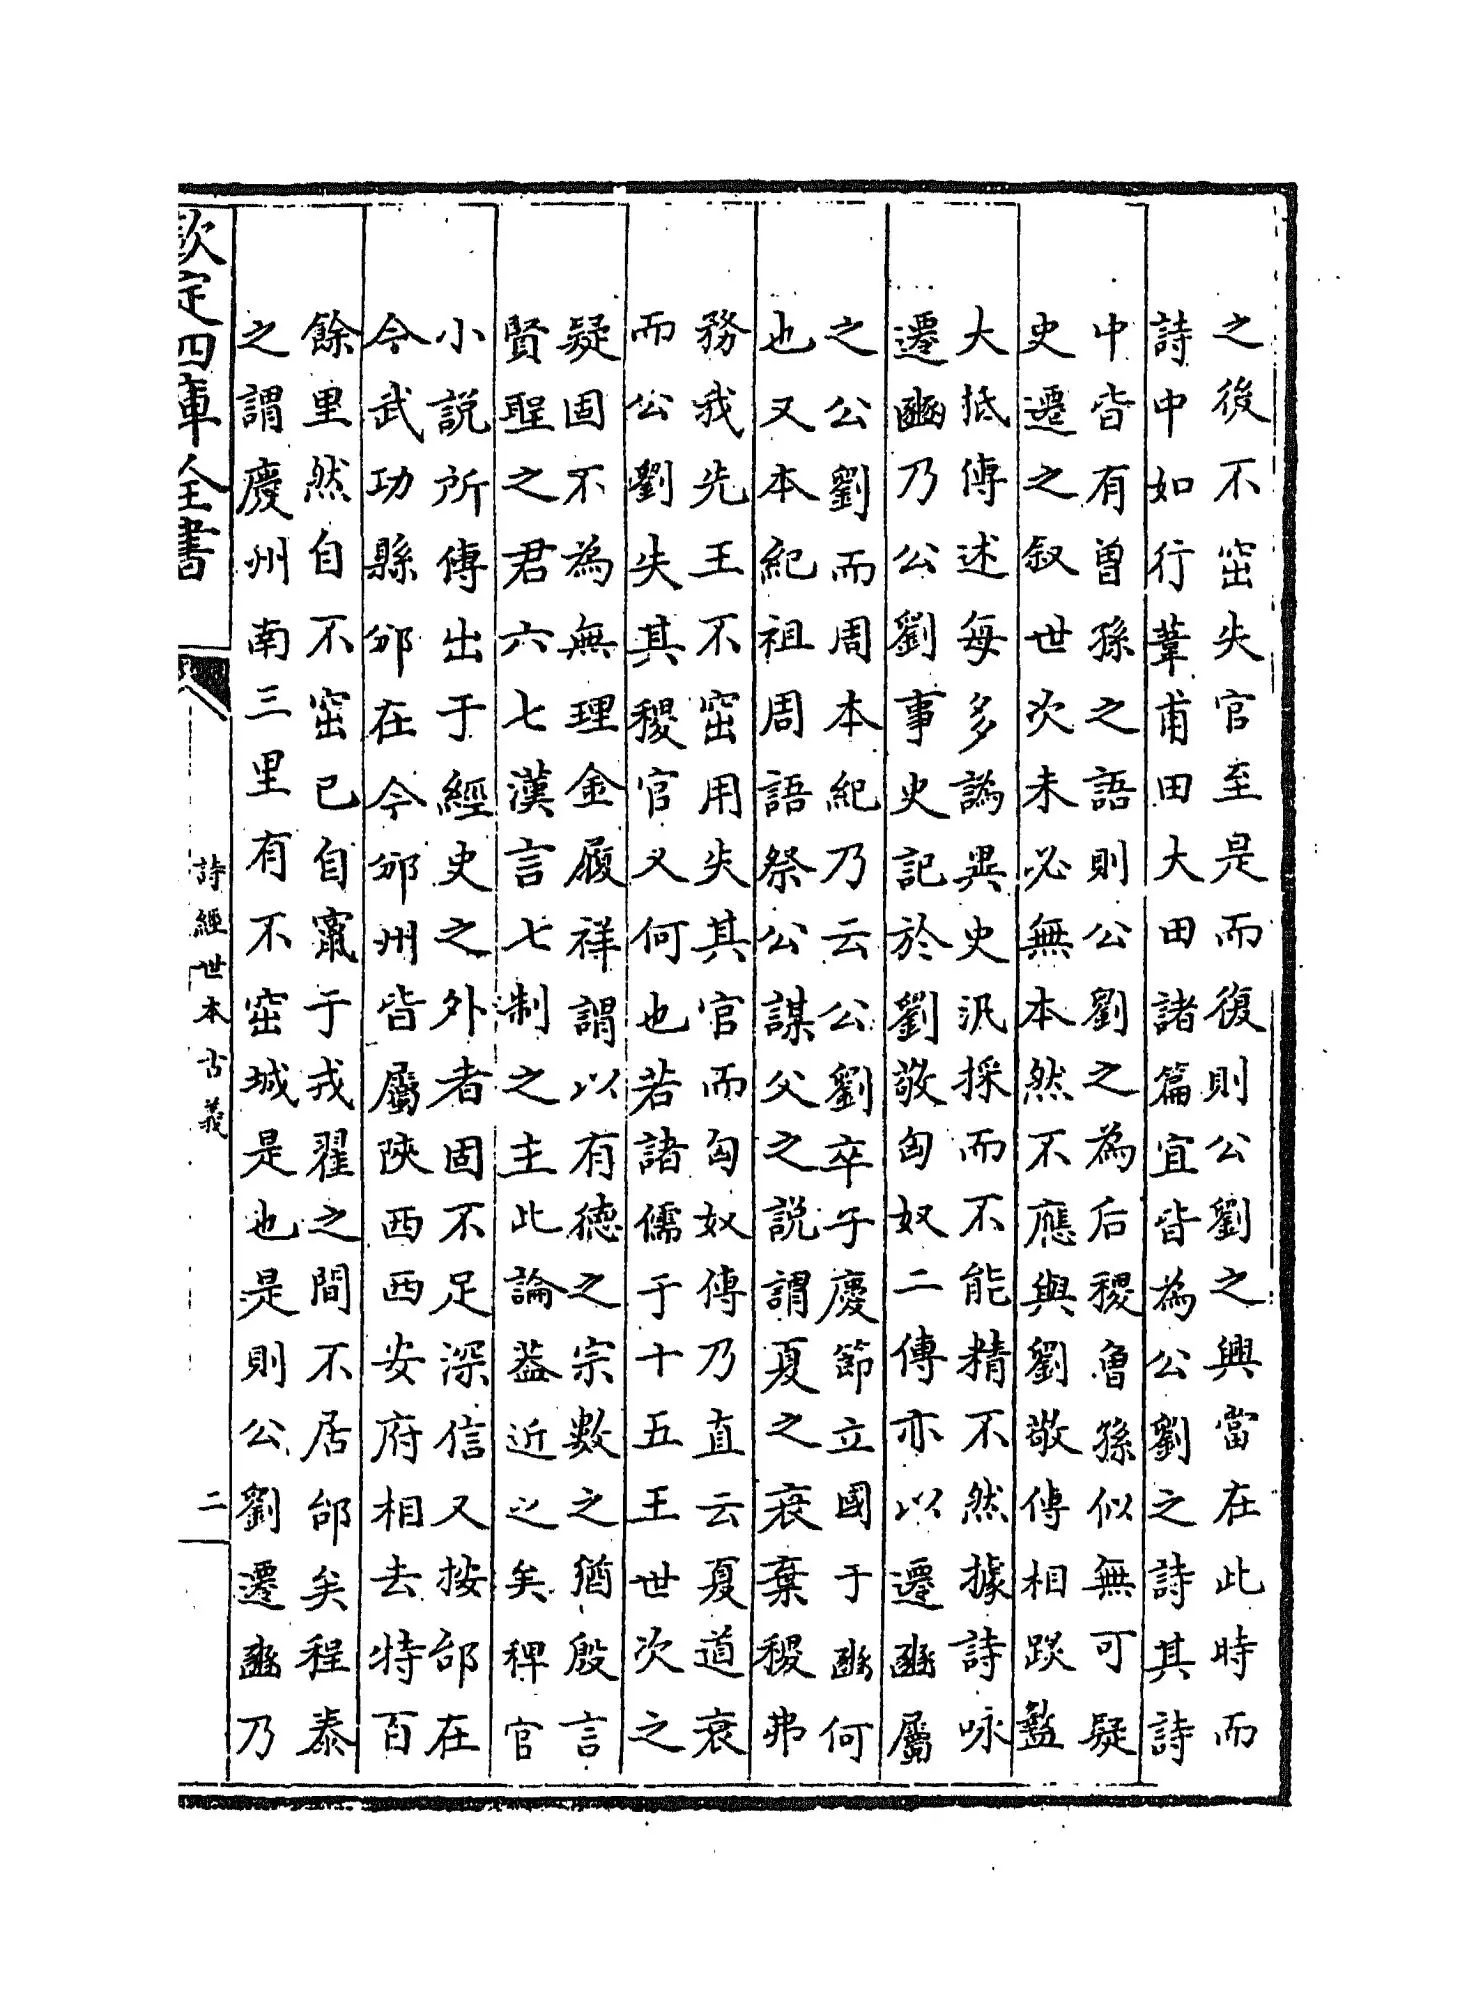 之後不窋失官至是而復則公劉之興當在此時而
詩中如行葦甫田大田諸篇宜皆為公劉之詩其詩
中皆有曾孫之語則公劉之為后稷魯孫似無可疑
史遷之叙世次未必無本然不應與劉敬傳相踳盭
大抵傳述每多譌異史汎採而不能精不然據詩咏
遷豳乃公劉事史記於劉敬匈奴二傳亦以遷豳屬
之公劉而周本紀乃云公劉卒子慶節立國于豳何
也又本紀祖周語祭公謀父之説謂夏之衰棄稷弗
務我先王不窋用失其官而匈奴傳乃直云夏道衰
而公劉失其稷官又何也若諸儒于十五王世次之
疑固不為無理金履祥謂以有德之宗數之猶殷言
賢聖之君六七漢言七制之主此論葢近之矣稗官
小説所傳出于經史之外者固不足深信又按邰在
今武功縣邠在今邠州皆屬陜西西安府相去特百
餘里然自不窋已自竄于戎翟之間不居邰矣程泰
之謂慶州南三里有不窋城是也是則公劉遷豳乃
欽定四庫全書
詩經世本古義
二